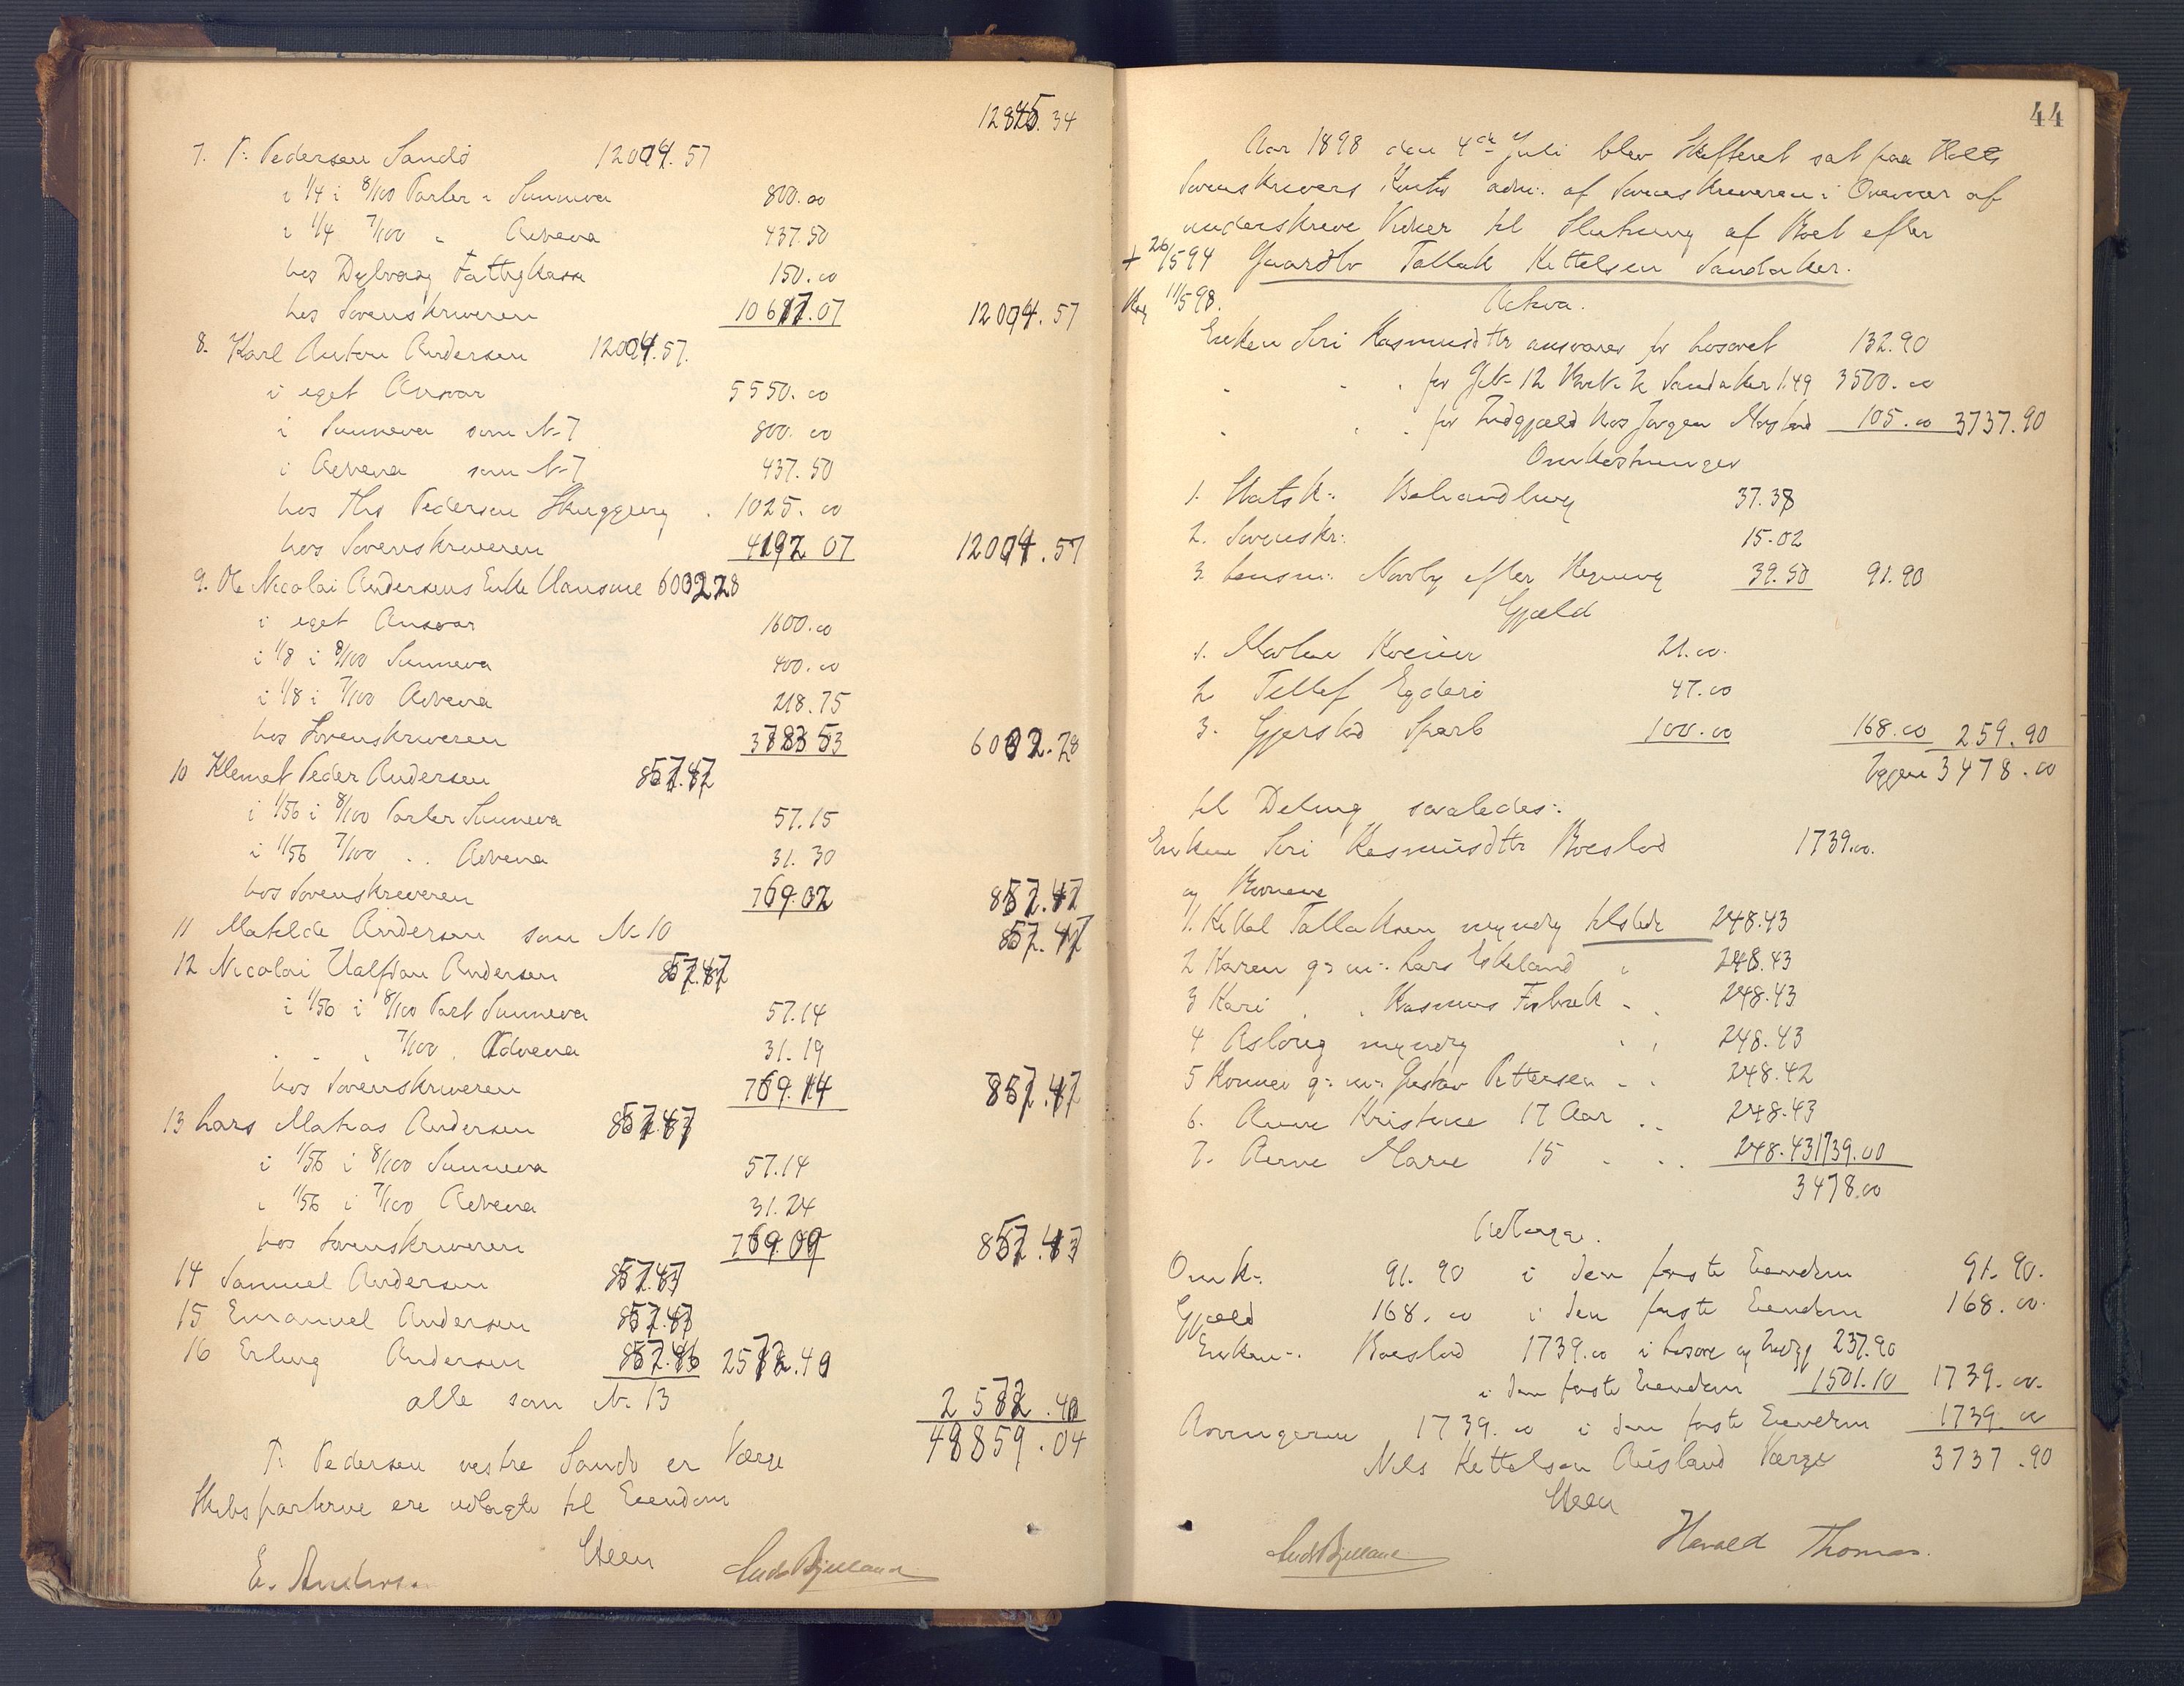 12845.34
7. T. Pedersen Sandø 12004.57
i 1/4 i 8/100 Parter i Sunneva 800.00
i 1/4 7/100 " Advena 437.50
hos Dybvaag Fattigkasse 150.00
hos Sorenskriveren 10617.07 12004.57
8. Karl Anton Andersen 12004.57.
i eget Ansvar 5550.00
i Sunneva som N. 7 800.00
i Advena som N. 7 437.50
hos Ths Pedersen 1025.00
hos Sorenskriveren 4192 07 12004.57
9. Ole Nicolai Andersens Enke Hansine 6002 28
i eget Ansvar 1600.00
i 1/8 i 8/100 Sunneva 400.00
i 1/8 i 7/100 Advena 218.75
hos Sorenskriveren 3783 53 6002.28
10 Klemet Peder Andersen 857.47
i 1/56 i 8/100 Parter Sunneva 57.15
i 1/56 7/100 . . Advena 31.30
hos Sorenskriveren 769.02 857.47
11 Matilde Andersen som N. 10 857.47
12 Nicolai Halfdan Andersen 857.47
i 1/56 i 8/100 Part Sunneva 57.14
" " " 7/100 . Advena 31.19
hos Sorenskriveren 769.14 857.47
13 Lars Matias Andersen 857.47
i 1/56 i 8/100 Sunneva 57.14
i 1/56 i 7/100 Advena 31.24
hos Sorenskriveren 769.09 857.47
14 Samuel Andersen 857.47
15 Emanuel Andersen 857.47
16 Erling Andersen 857.46 2572.40
alle som N. 13 2572.40
48859.04
T. Pedersen vestre Sandø er Værge
Skibsparterne ere udlagte til Eiendom
Steen
E. Andersen
44
Aar 1898 den 4de Juli blev Skifteret sat paa Holts
Sorenskrivers Kontor adm: af Sorenskriveren i Overvær af
underskrevne Vidner til Slutning af Boet efter
+ 26/5 94 Gaardbr Tallak Kittelsen Sandaker.
Reg 11/5 98. Aktiva.
Enken Siri Rasmusdtr ansvarer for Løsøret 132.90
" " " for G.N. 12 Br.N. 2 Sandaker 1.49 3500.00
" " " for Indgjæld hos Jørgen 105.00 3737.90
Omkostninger
1. Statsk: Behandling 37.38
2. Sorenskr: 15.02
3. Lensm: Norby efter Regning 39.50 91.90
Gjæld
1. 21.00.
2. Tellef Egdexø 47.00
3. Gjerstad Sparb 100.00 168.00 259.90
Igjen 3478.00
til Deling saaledes:
Enken Siri Rasmusdtr Boeslod 1739.00.
og Børnene
1. Kittel Tallaksen myndig tilstede 248.43
2 Karen g: m: Lars Eskeland " 248.43
3 Kari " " Rasmus " " 248.43
4 Aslaug myndig " " 248.43
5 g: m: Gustav Pettersen " " 248.42
6. Anne Kristine 17 Aar " " 248.43
7. Anne Marie 15 " " " 248.43 1739.00
3478.00
Udlæg.
Omk: 91.90 i den faste Eiendom 91.90.
Gjæld 168.00 i den faste Eiendom 168.00.
Enken: Boeslod 1739.00 i Løsøre og Indgj 237.90
i den faste Eiendom 1501.10 1739.00.
Arvingerne 1739.00 i den faste Eiendom 1739.00
Nils Kittelsen Værge 3737.90
Steen
Harald Thomas.